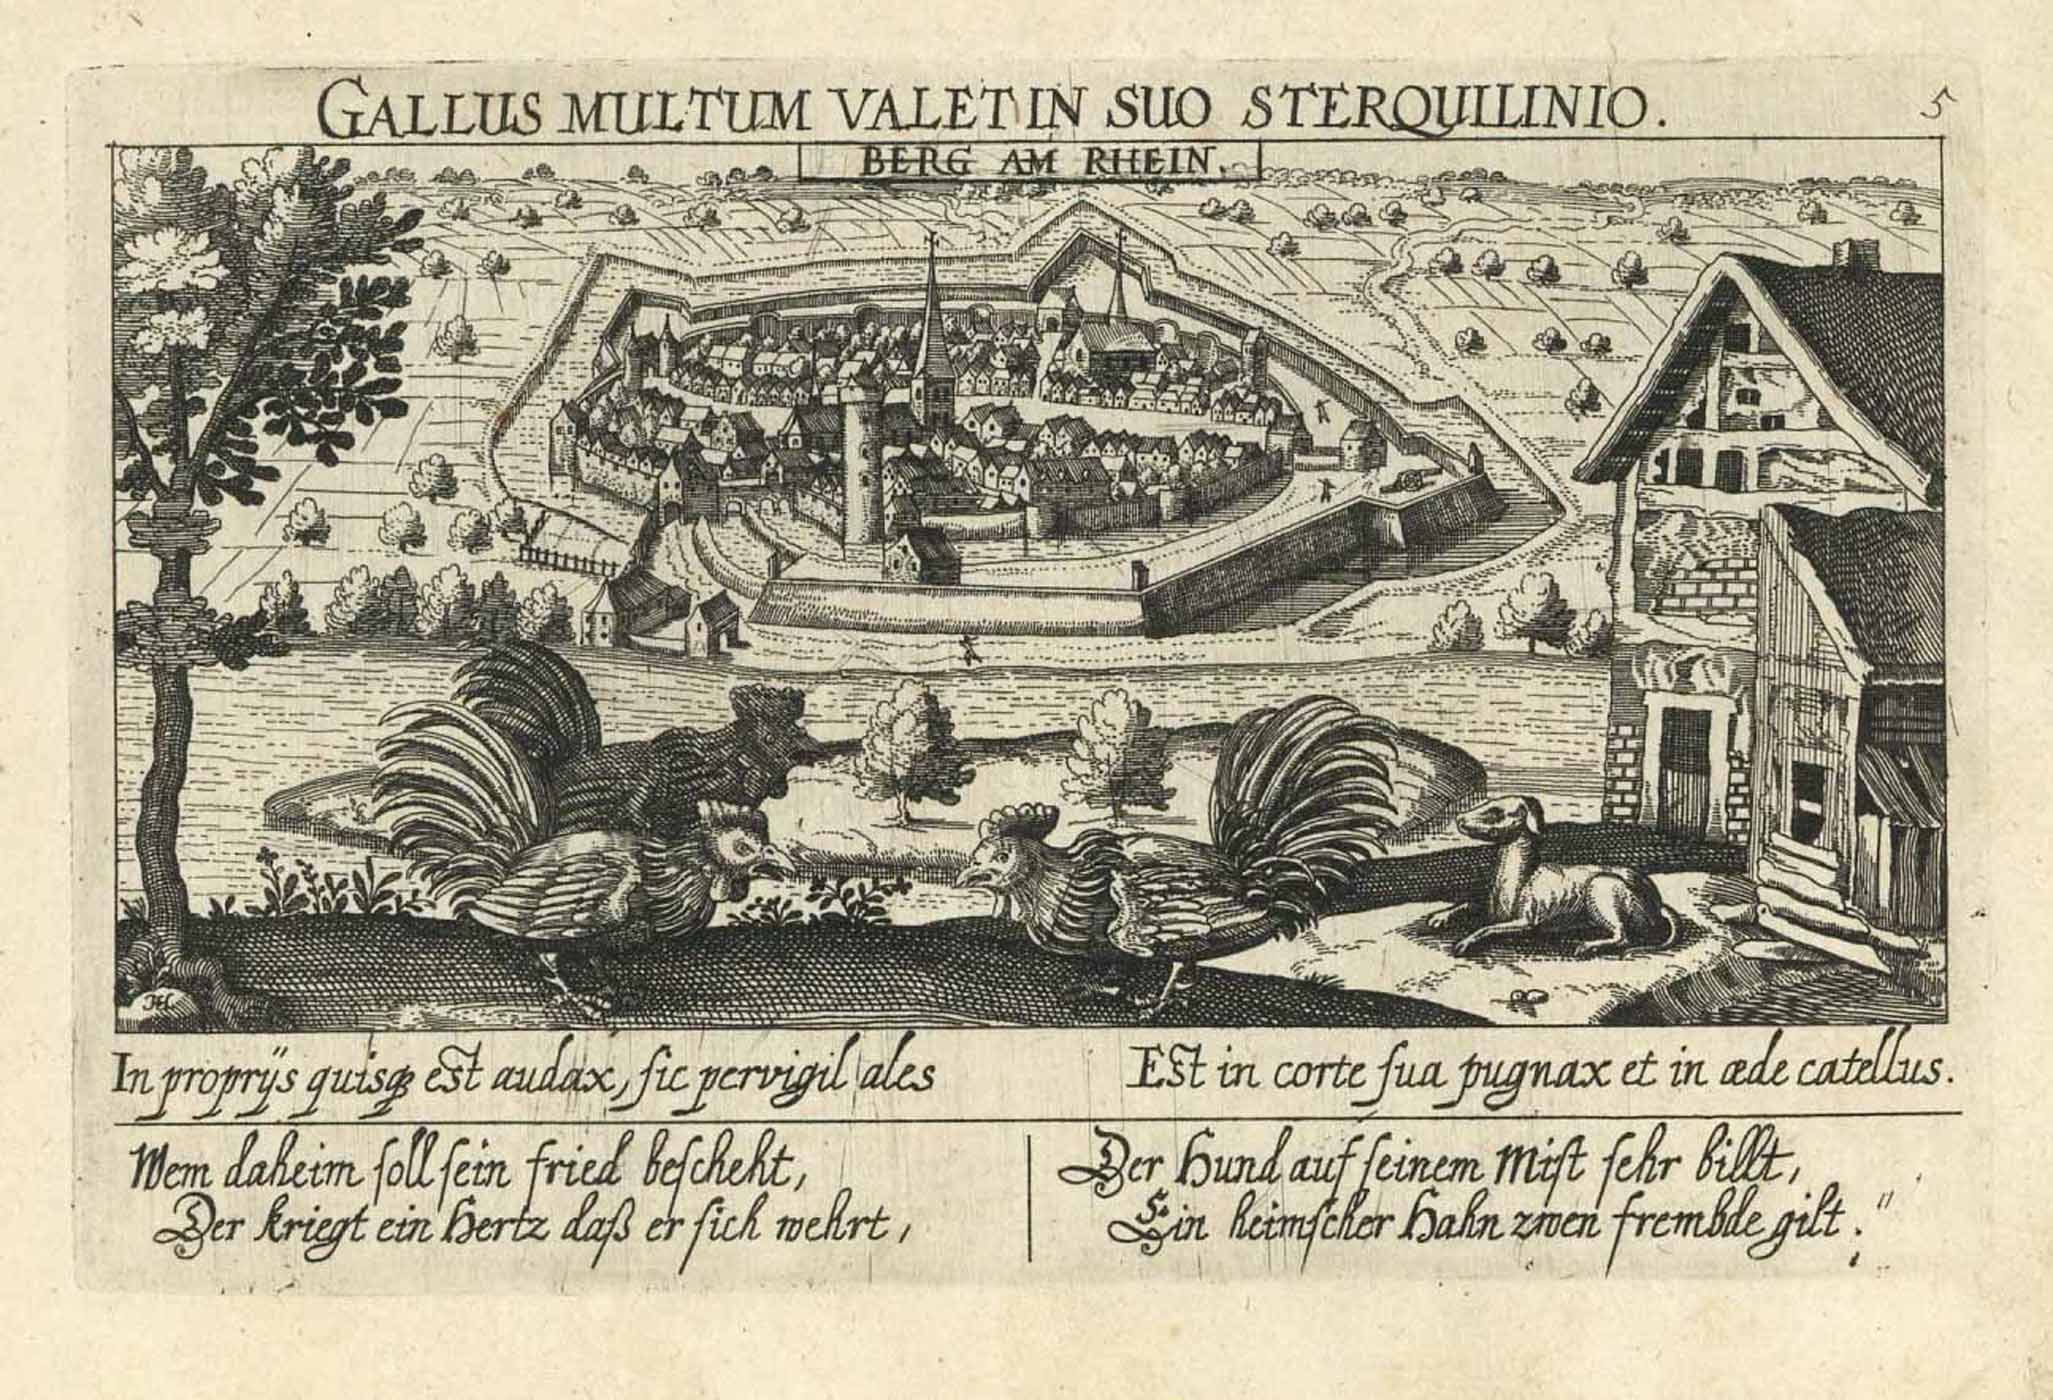 GALLUS MULTUM VALET IN SUO STERQUILINIO.
5
BERG AM RHEIN.
In proprijs quisqꝫ est audax, sic pervigil ales
Est in corte sua pugnax et in æde catellus.
Wem daheim soll sein fried bescheht,
Der kriegt ein Hertz daß er sich wehrt,
Der Hund auf seinem Mist sehr billt,
Ein heimscher Hahn zwen frembde gilt.